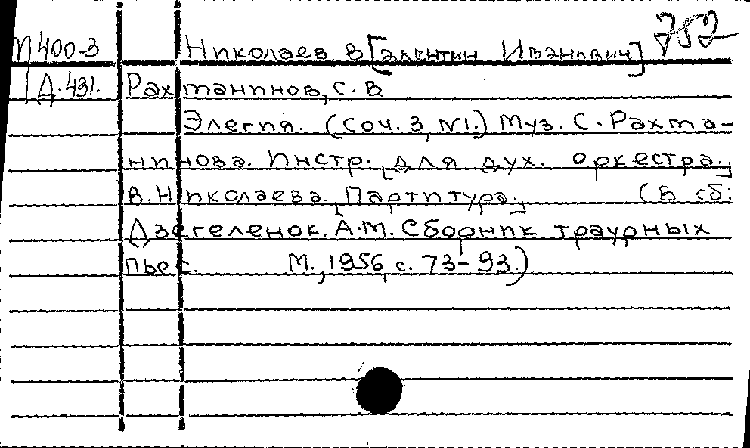 752
П400-3 Николаев В[алентин Иванович]
Д.431. Рахманинов, С. В
Элегия. (Соч. 3, №1.) Муз. С. Рахма-
нинова. Инстр. [для дух. оркестра.]
В. Николаева [Партитура.] (В сб:
Дзегеленок. А.М. Сборник траурных
пьес. М., 1956, с. 73-93.)